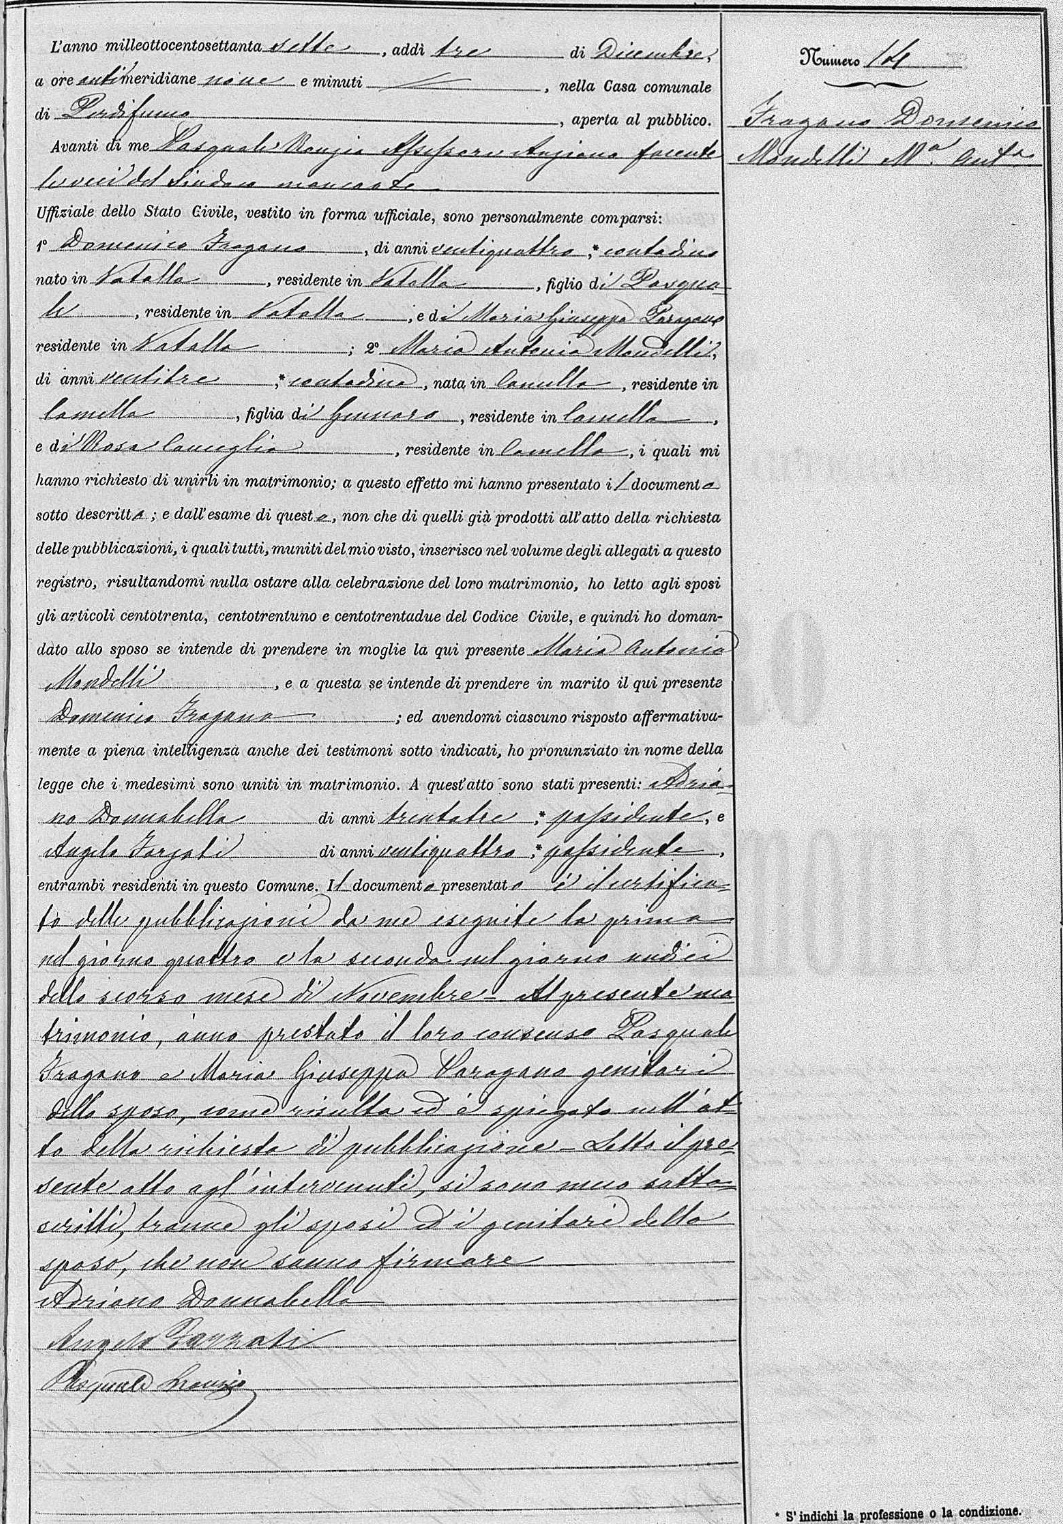 L'anno milleottocentosettanta sette, addì tre di Dicembre,
a ore antimeridiane nove e minuti, nella Casa comunale
di Perdifumo, aperta al pubblico.
Avanti di me Pasquale Assessore Anziano facente
le veci del Sindaco mancante
Uffiziale dello Stato Civile, vestito in forma ufficiale, sono personalmente comparsi:
1° Domenico Fragano, di anni ventiquattro, * contadino
nato in Vatolla, residente in Vatolla, figlio di Pasqua
le, residente in Vatolla, e di Maria Giuseppa
residente in Vatolla; 2° Maria Antonia Mondelli,
di anni ventitre, * contadina, nata in Camella, residente in
Camella, figlia di Gennaro, residente in Camella,
e di Rosa Coniglio, residente in Camella, i quali mi
hanno richiesto di unirli in matrimonio; a questo effetto mi hanno presentato il documento
sotto descritto; e dall'esame di questo, non che di quelli già prodotti all'atto della richiesta
delle pubblicazioni, i quali tutti, muniti del mio visto, inserisco nel volume degli allegati a questo
registro, risultandomi nulla ostare alla celebrazione del loro matrimonio, ho letto agli sposi
gli articoli centotrenta, centotrentuno e centotrentadue del Codice Civile, e quindi ho doman-
dato allo sposo se intende di prendere in moglie la qui presente Maria Antonia
Mondelli, e a questa se intende di prendere in marito il qui presente
Domenico Fragano; ed avendomi ciascuno risposto affermativa-
mente a piena intelligenza anche dei testimoni sotto indicati, ho pronunziato in nome della
legge che i medesimi sono uniti in matrimonio. A quest'atto sono stati presenti: Adria-
no Donnabella di anni trentatre, * possidente, e
Angelo Farzati di anni ventiquattro, * possidente,
entrambi residenti in questo Comune. Il documento presentato è il certifica-
to delle pubblicazioni da me eseguite la prima
nel giorno quattro e la seconda nel giorno undici
dello scorso mese di Novembre - Al presente ma
trimonio, anno prestato il loro consenso Pasquale
Fragano e Maria Giuseppa genitori
dello sposo, come risulta ed è spiegato nell'at-
to della richiesta di pubblicazione - Letto il pre-
sente atto agl'intervenuti, si sono meco sotto-
scritti, tranne gli sposi ed i genitori dello
sposo, che non sanno firmare
Adriano Donnabella
Angelo Farzati
Pasquale
Numero 14
Fragano Domenico
Mondelli Mª Antª
* S'indichi la professione o la condizione.